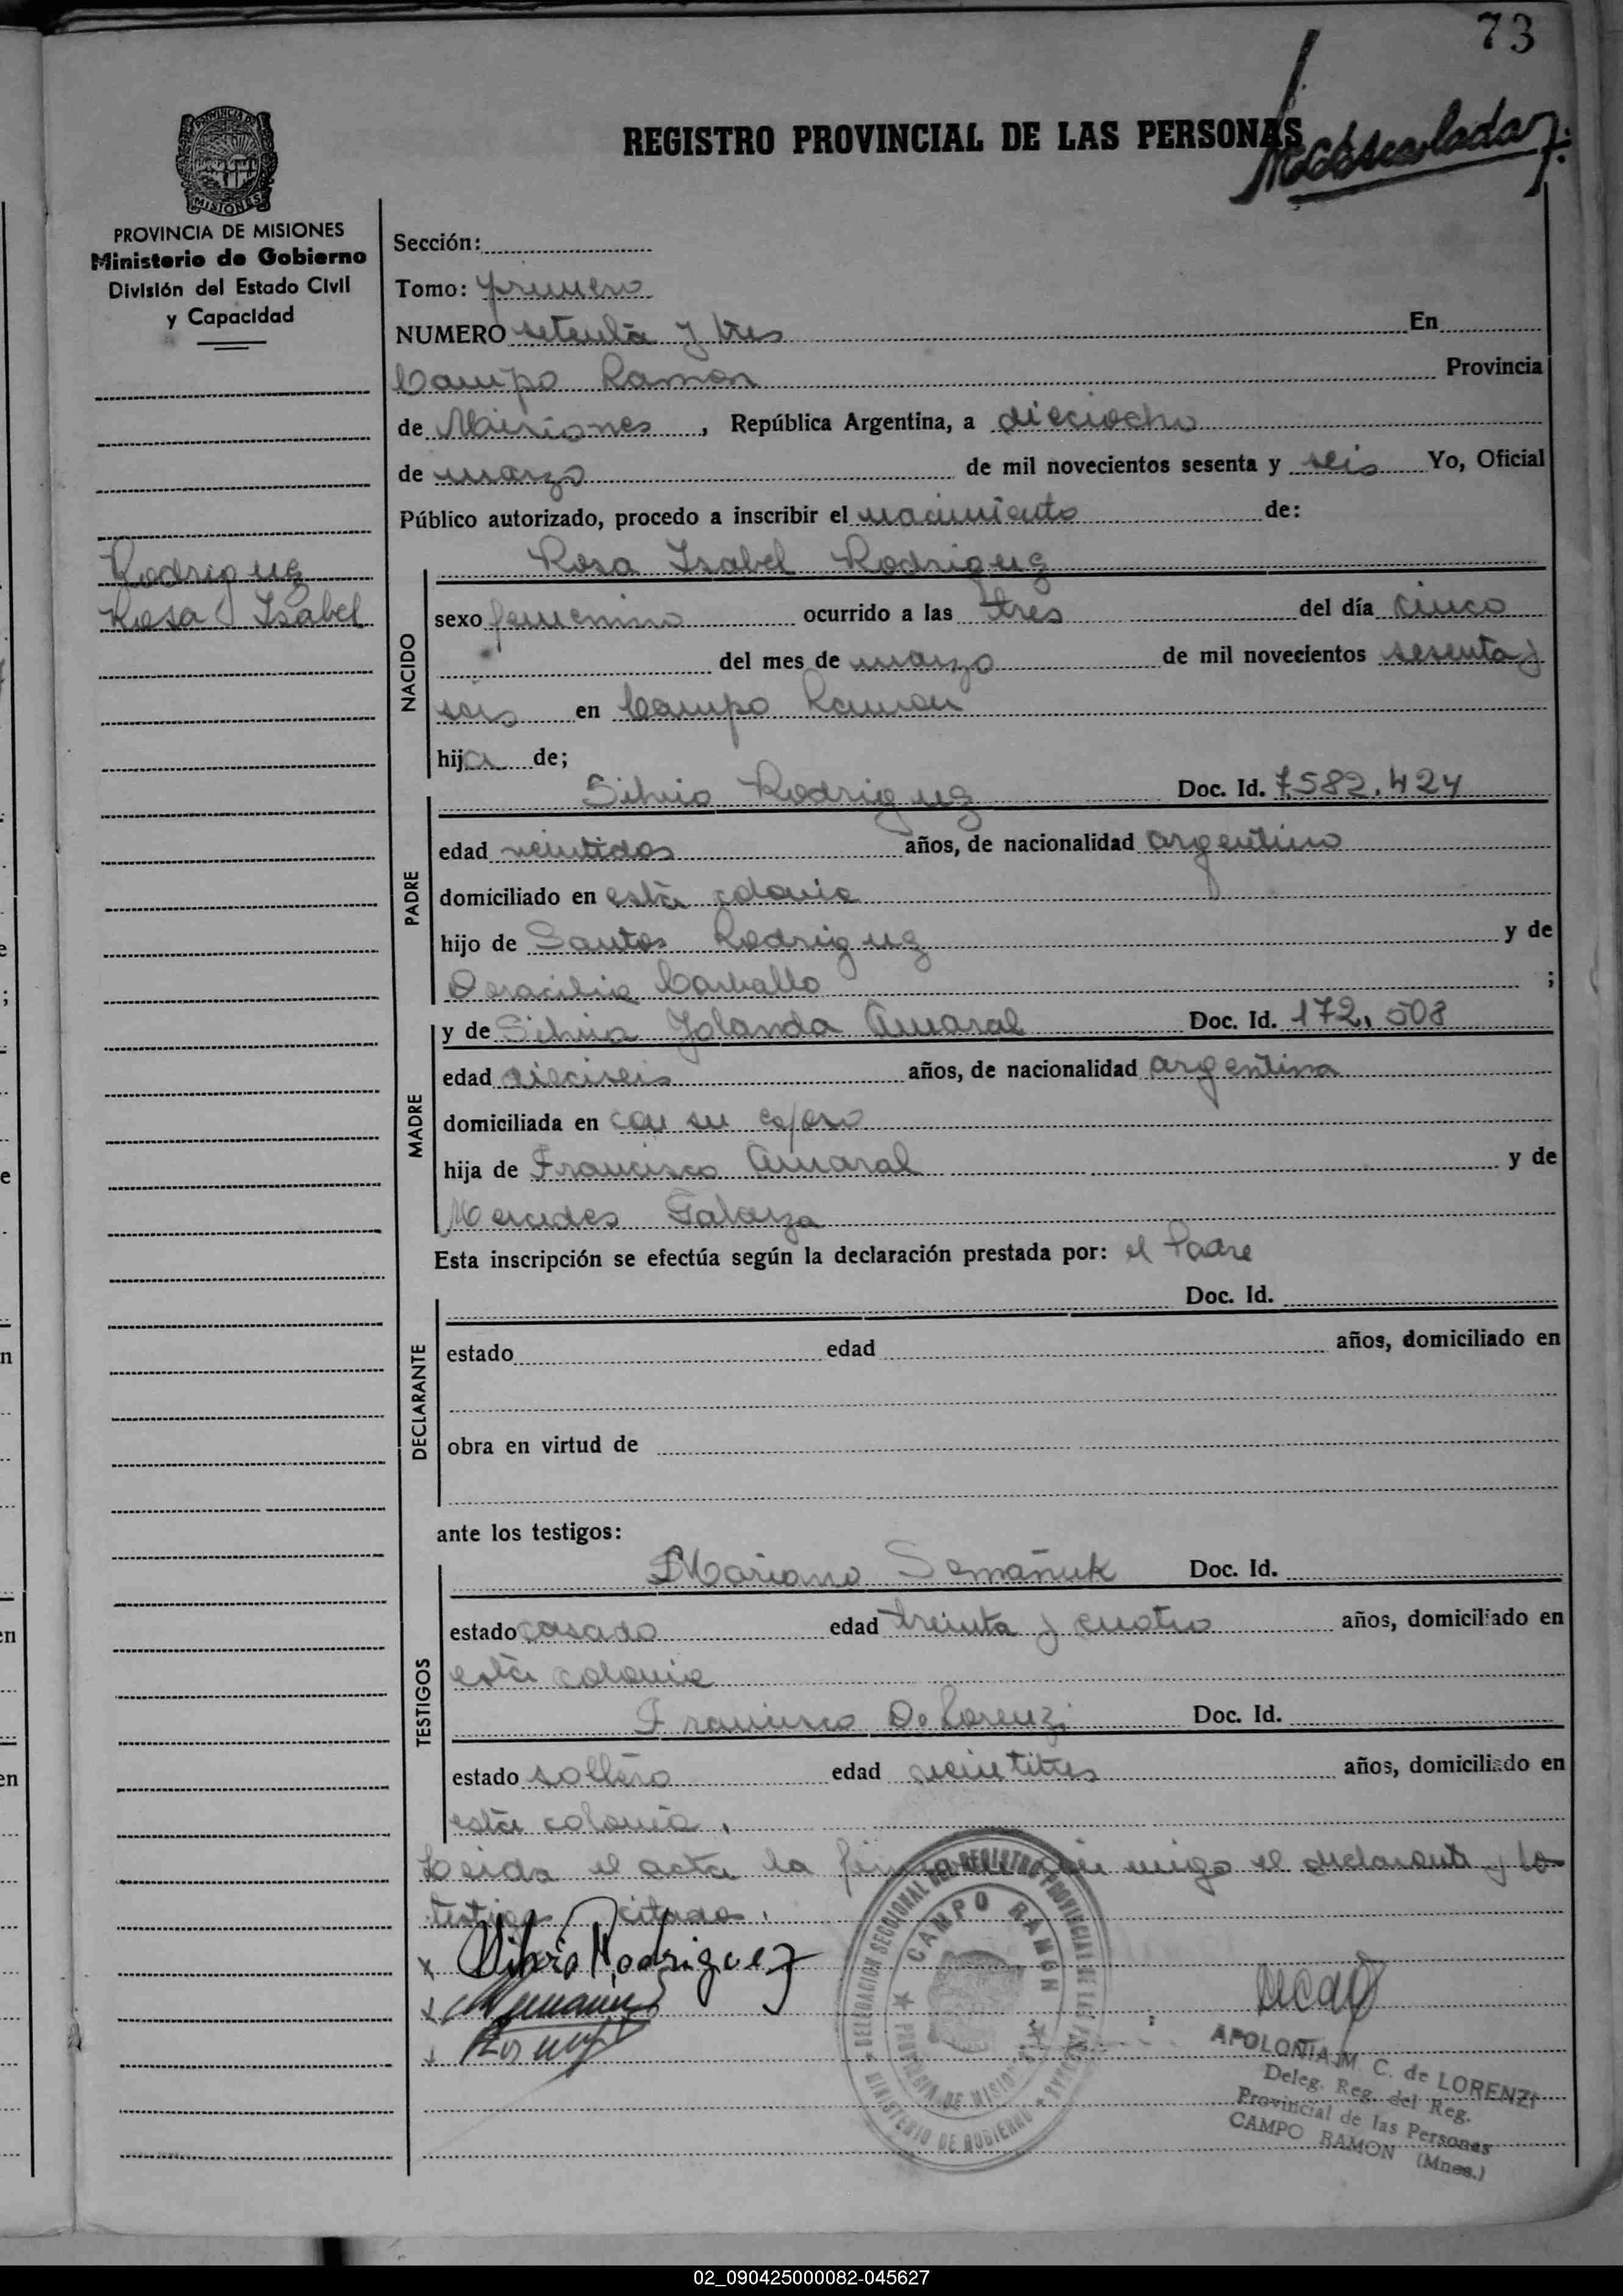 73
REGISTRO PROVINCIAL DE LAS PERSONAS
PROVINCIA DE MISIONES
Ministerio de Gobierno
División del Estado Civil
y Capacidad
Rodriguez
Rosa Isabel
Sección:
Tomo: primero
NUMERO setenta y tres En
Campo Ramon Provincia
de Misiones, República Argentina, a dieciocho
de marzo de mil novecientos sesenta y seis Yo, Oficial
Público autorizado, procedo a inscribir el nacimiento de:
NACIDO
Rosa Isabel Rodriguez
sexo femenino ocurrido a las tres del día cinco
del mes de marzo de mil novecientos sesenta y
seis en Campo Ramon
hija de;
PADRE
Silvio Rodriguez Doc. Id. 7582.424
edad veintidos años, de nacionalidad argentino
domiciliado en esta colonia
hijo de Santos Rodriguez y de
Carballo ;
MADRE
y de Silvia Jolanda Amaral Doc. Id. 172.508
edad dieciseis años, de nacionalidad argentina
domiciliada en con su esposo
hija de Francisco Amaral y de
Mercedes Galarza
Esta inscripción se efectúa según la declaración prestada por: el Padre
DECLARANTE
Doc. Id.
estado edad años, domiciliado en
obra en virtud de
ante los testigos:
TESTIGOS
Mariano Semañuk Doc. Id.
estado casado edad treinta y cuatro años, domiciliado en
esta colonia
Francisco De Lorenzi Doc. Id.
estado soltero edad veintitres años, domiciliado en
esta colonia.
Leida el acta la firman conmigo el declarante y los
testigos citados.
x Silvio Rodriguez
DELEGACION SECCIONAL DEL REGISTRO PROVINCIAL DE LAS PERSONAS
MINISTERIO DE GOBIERNO
CAMPO RAMON
PROVINCIA DE MISIONES
APOLONIA M. C. de LORENZI
Deleg. Reg. del Reg.
Provincial de las Personas
CAMPO RAMON (Mnes.)
02_090425000082-045627